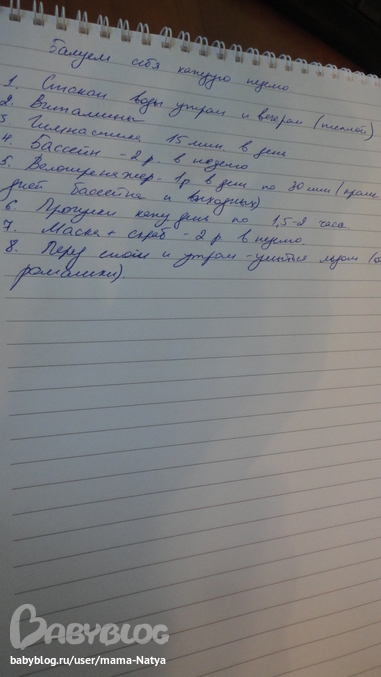 Балуем себя каждую неделю
1. Стакан воды утром и вечером (теплой)
2. Витамины
3 Гимнастика 15 мин. в день
4. Бассейн - 2 р. в неделю
5. Велотренажер - 1р в день по 30 мин (кроме
дней бассейна и выходных)
6 Прогулки каждый день по 1,5-2 часа
7. Маска + скраб - 2 р. в неделю.
8. Перед сном и утром - умыться льдом (
ромашки).
BABYBLOG
babyblog.ru/user/mama-Natya